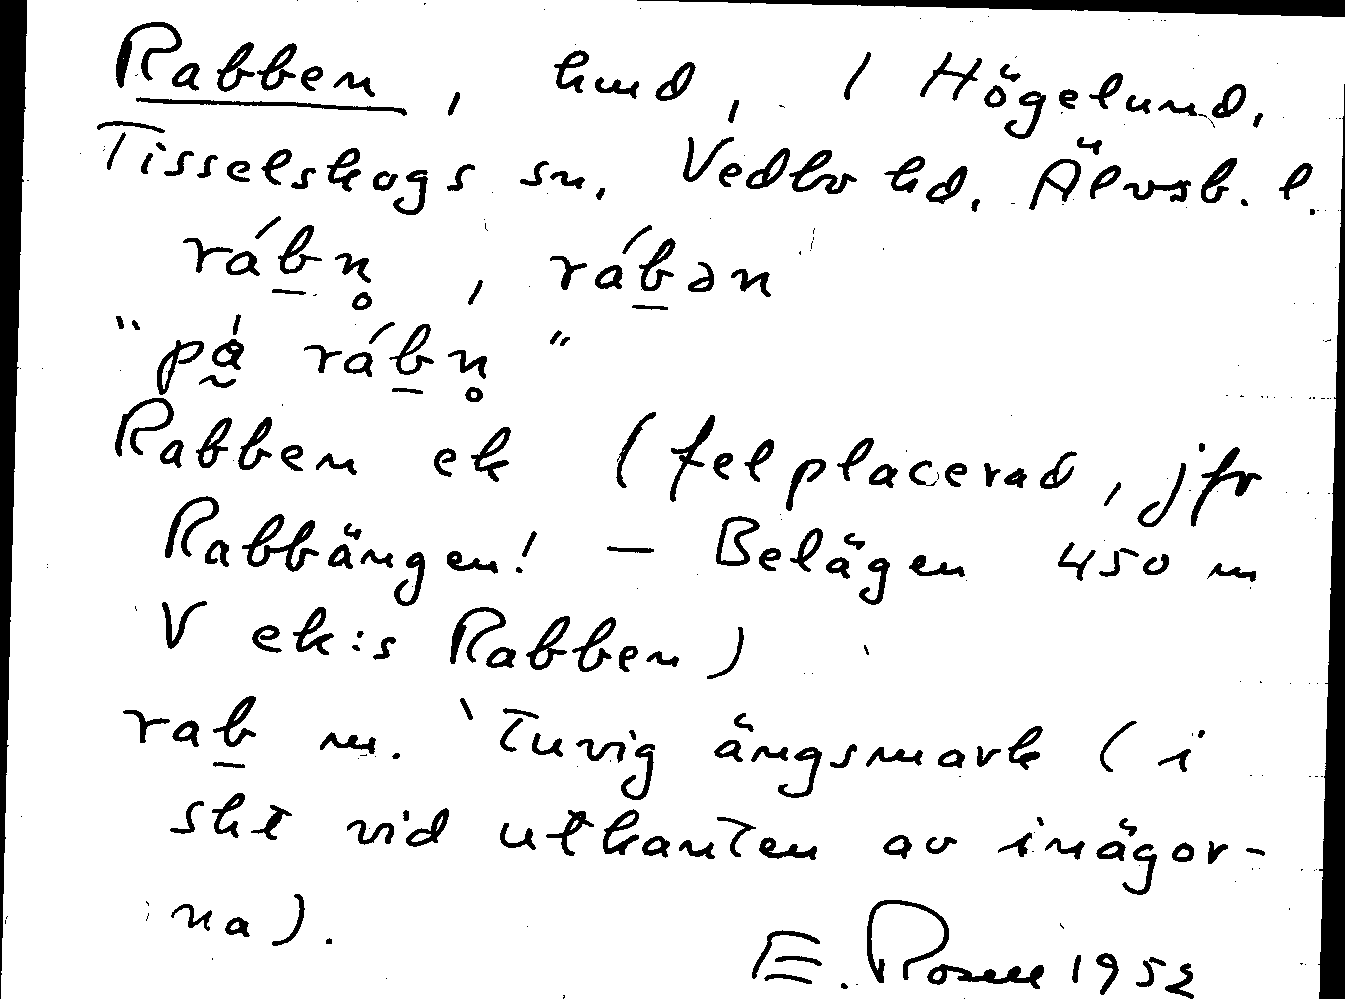 Rabben, hmd, / Högelund,
Tisselskogs sn, Vedbo hd, Älvsb. l.
rábn̥, rábən
"på rábn̥"
Rabben ek (felplacerad, jfr
Rabbängen! — Belägen 450 m
V ek:s Rabben)
rab m. 'Tuvig ängsmark (i
skt vid utkanten av inägor-
na).
E. Rosell 1952